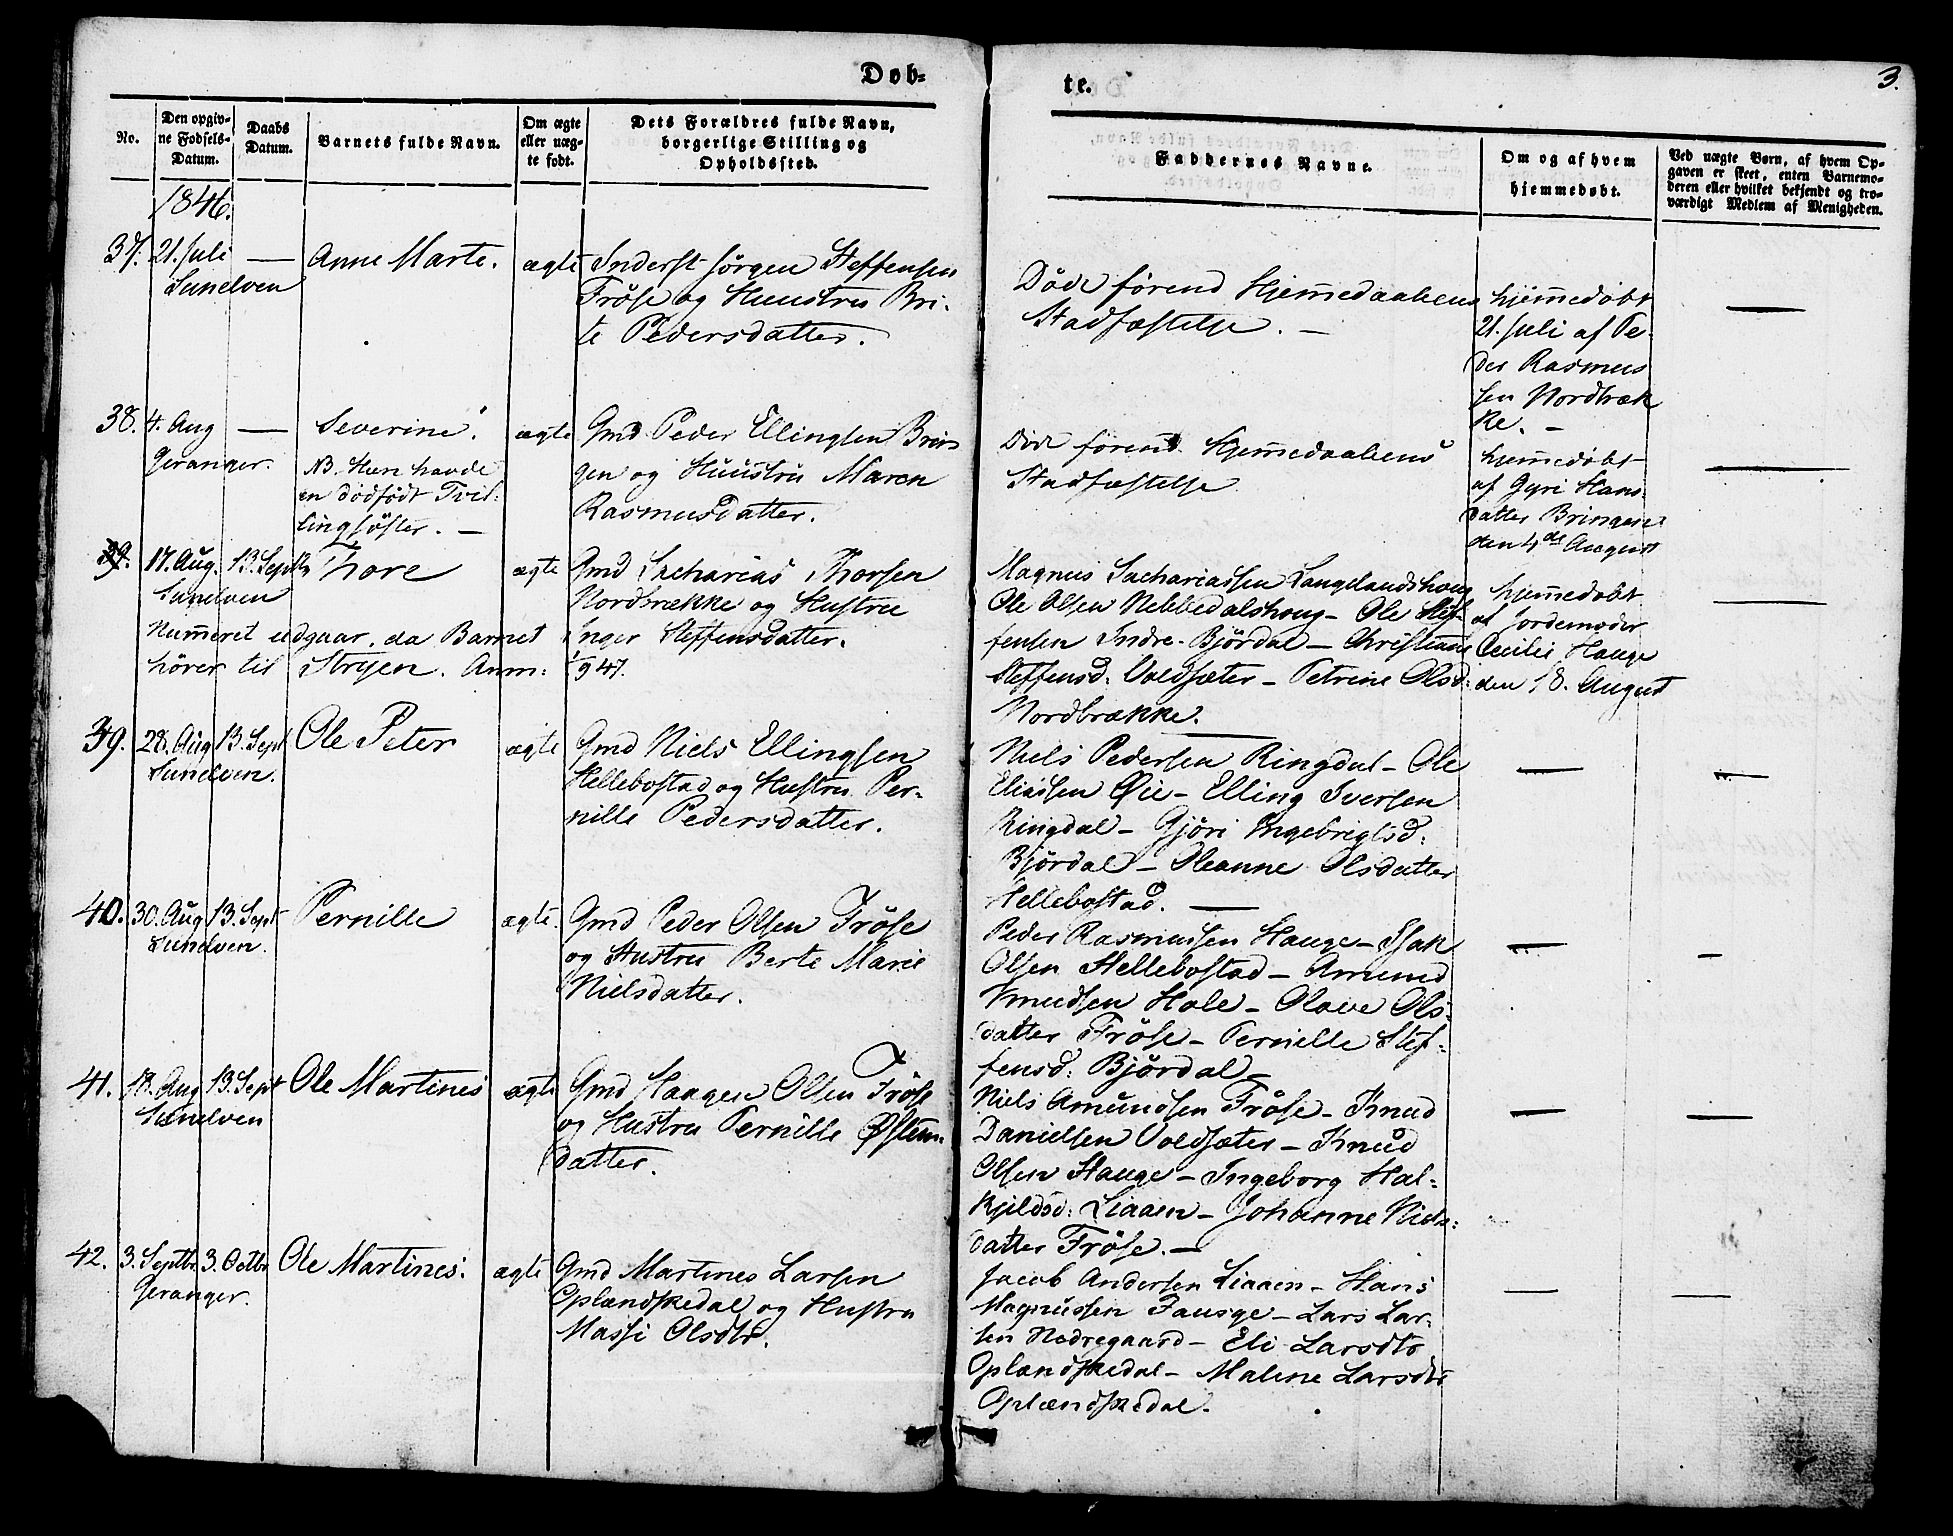 Døb-
te.
3.
No.
Den opgiv-
ne Fødsels-
Datum.
Daabs
Datum.
Barnets fulde Navn.
Om ægte
eller uæg-
te født.
Dets Forældres fulde Navn,
borgerlige Stilling og
Opholdssted.
Faddernes Navne.
Om og af hvem
hjemmedøbt.
Ved uægte Børn, af hvem Op-
gaven er skeet, enten Barnemo-
deren eller hvilket bekjendt og tro-
værdigt Medlem af Menigheden.
1846.
37. 21. Juli — Anne Marte. ægte
Sunelven
Inderst Jørgen Steffensen
Frøse og Huustru Bri-
te Pedersdatter.
Døde førend Hjemmedaabens
Stadfæstelse. —
hjemmedøbt
21. Juli af Pe-
der Rasmus
sen Nordbræk
ke. —
—
38. 4. Aug — Severine. ægte
Geranger.
NB. Hun havde
en dødfødt Tvil-
lingsøster. —
Gmd Peder Ellingsen Brin-
gen og Huustru Maren
Rasmusdatter.
Døde førend Hjemmedaabens
Stadfæstelse
hjemmedøbt
af Gyri Hans-
datter Bringen
den 4de August
—
39. 17. Aug. 13. Septbr Thore ægte
Sunelven
Numeret udgaar, da Barnet
hører til Stryen. Anm:
Gmd Sacharias Thorsen
Nordbrække og Hustru
Inger Steffensdatter.
1/9 47.
Magnus Sachariassen Langelandshoug
Ole Olsen Nebbedalshoug - Ole Stef-
fensen Indre-Bjørdal - Christiane
Steffensd: Voldsæter - Petrine Olsd:
Nordbrække.
hjemmedøbt
af Jordemoder
Cecilie Hauge
den 18. August
—
39. 28. Aug 13. Sept Ole Peter ægte
Sunelven.
Gmd Niels Ellingsen
Hellebostad og Hustru Per-
nille Pedersdatter.
Niels Pedersen Ringdal - Ole
Eliassen Øie - Elling Iversen
Ringdal - Gjøri Ingebrigtsd:
Bjørdal - Oleanne Olsdatter
Hellebostad. —
—
—
40. 30. Aug 13. Sept Pernille ægte.
Sunelven.
Gmd Peder Olsen Frøse
og Hustru Berte Marie
Nielsdatter.
Peder Rasmussen Hauge - Isak
Olsen Hellebostad - Amund
Knudsen Hole - Olave Ols-
datter Frøse - Pernille Stef-
fensd: Bjørdal -
—
—
41. 18. Aug 13. Sept Ole Martinus ægte
Sunelven
Gmd Haagen Olsen Frøse
og Hustru Pernille Østen-
datter.
Niels Amundsen Frøse - Knud
Danielsen Voldsæter - Knud
Olsen Hauge - Ingeborg Hal-
kjeldsd: Liaaen - Johanne Niels-
datter Frøse. —
—
—
42. 3. Septbr. 3. Octbr Ole Martinus. ægte
Geranger.
Gmd Martinus Larsen
Oplændskedal og Hustru
Massi Olsdtr.
Jacob Andersen Liaaen - Hans
Magnussen Fausge - Lars Lar-
sen Nedregaard - Eli Larsdtr
Oplændskedal - Malene Larsdtr
Oplændskedal.
—
—